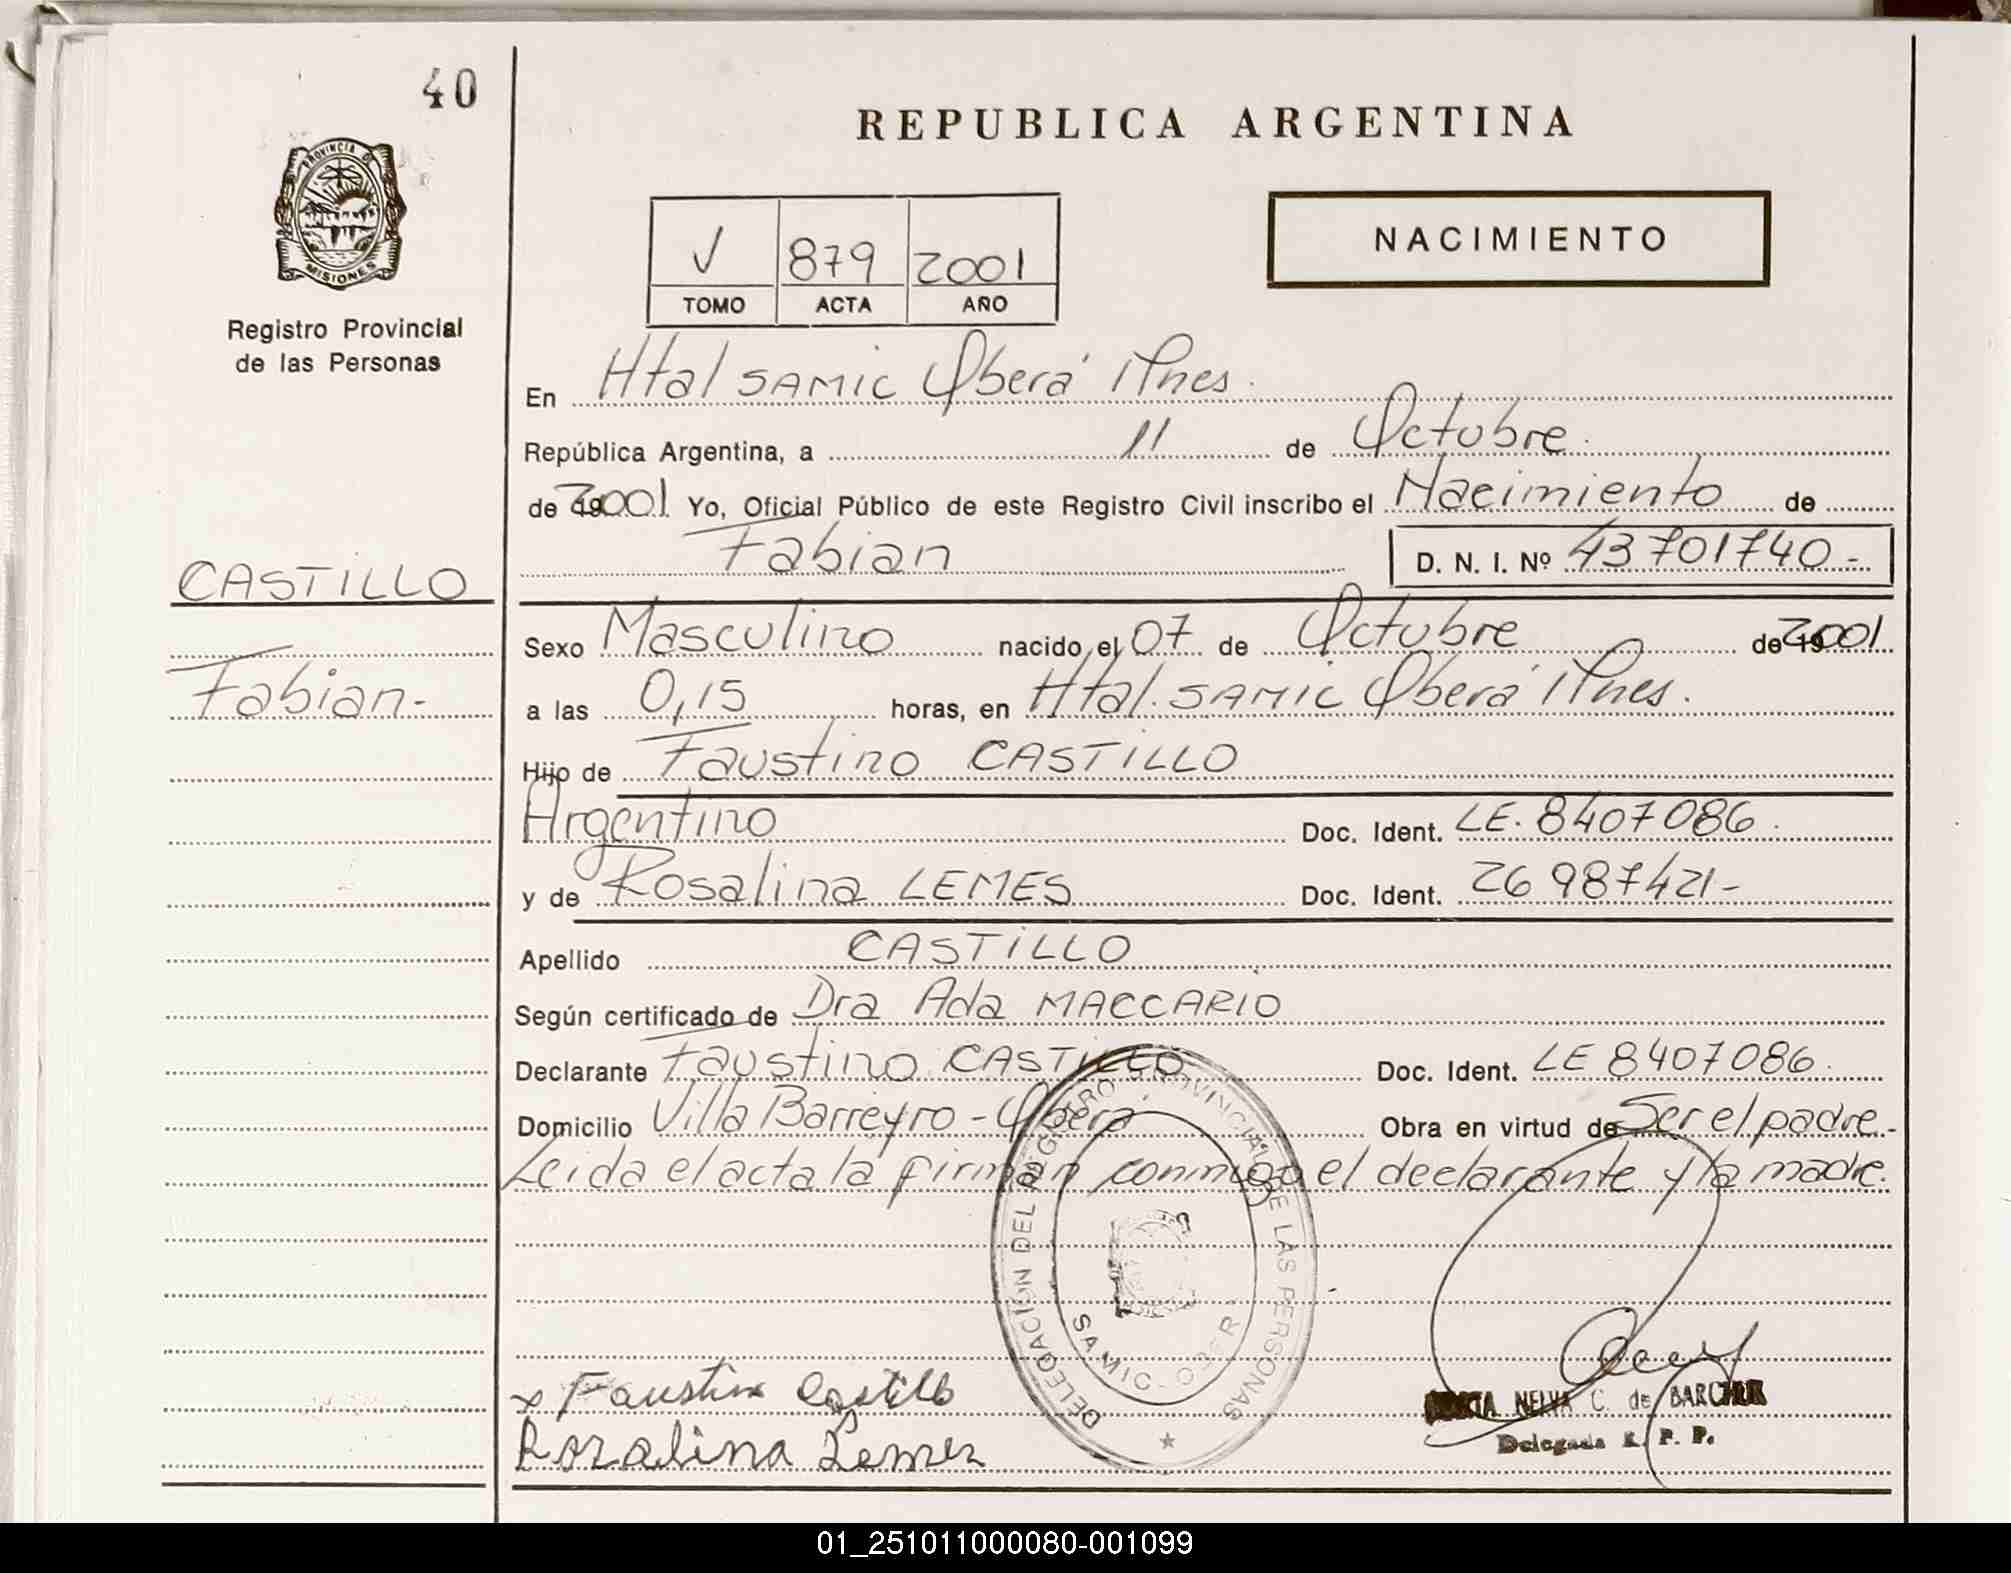 40
REPUBLICA ARGENTINA
PROVINCIA DE
MISIONES
Registro Provincial
de las Personas
V 879 2001
TOMO ACTA AÑO
NACIMIENTO
En Htal SAMIC Oberá Mnes.
República Argentina, a 11 de Octubre.
de 2001 Yo, Oficial Público de este Registro Civil inscribo el Nacimiento de
Fabian D. N. I. Nº 43701740.-
CASTILLO
Fabian-
Sexo Masculino nacido el 07 de Octubre de 2001
a las 0,15 horas, en Htal. SAMIC Oberá Mnes.
Hijo de Faustino CASTILLO
Argentino Doc. Ident. LE. 8407086.
y de Rosalina LEMES Doc. Ident. 26987421-
Apellido CASTILLO
Según certificado de Dra Ada MACCARIO
Declarante Faustino CASTILLO Doc. Ident. LE 8407086.
Domicilio Villa Barreyro - Oberá Obra en virtud de Ser el padre.-
Leida el acta la firman conmigo el declarante y la madre.
DELEGACION DEL REGISTRO PROVINCIAL DE LAS PERSONAS
SAMIC - OBERA
x Faustino Castillo
Rosalina Lemes
NELVA C. de
Delegada R. P. P.
01_251011000080-001099